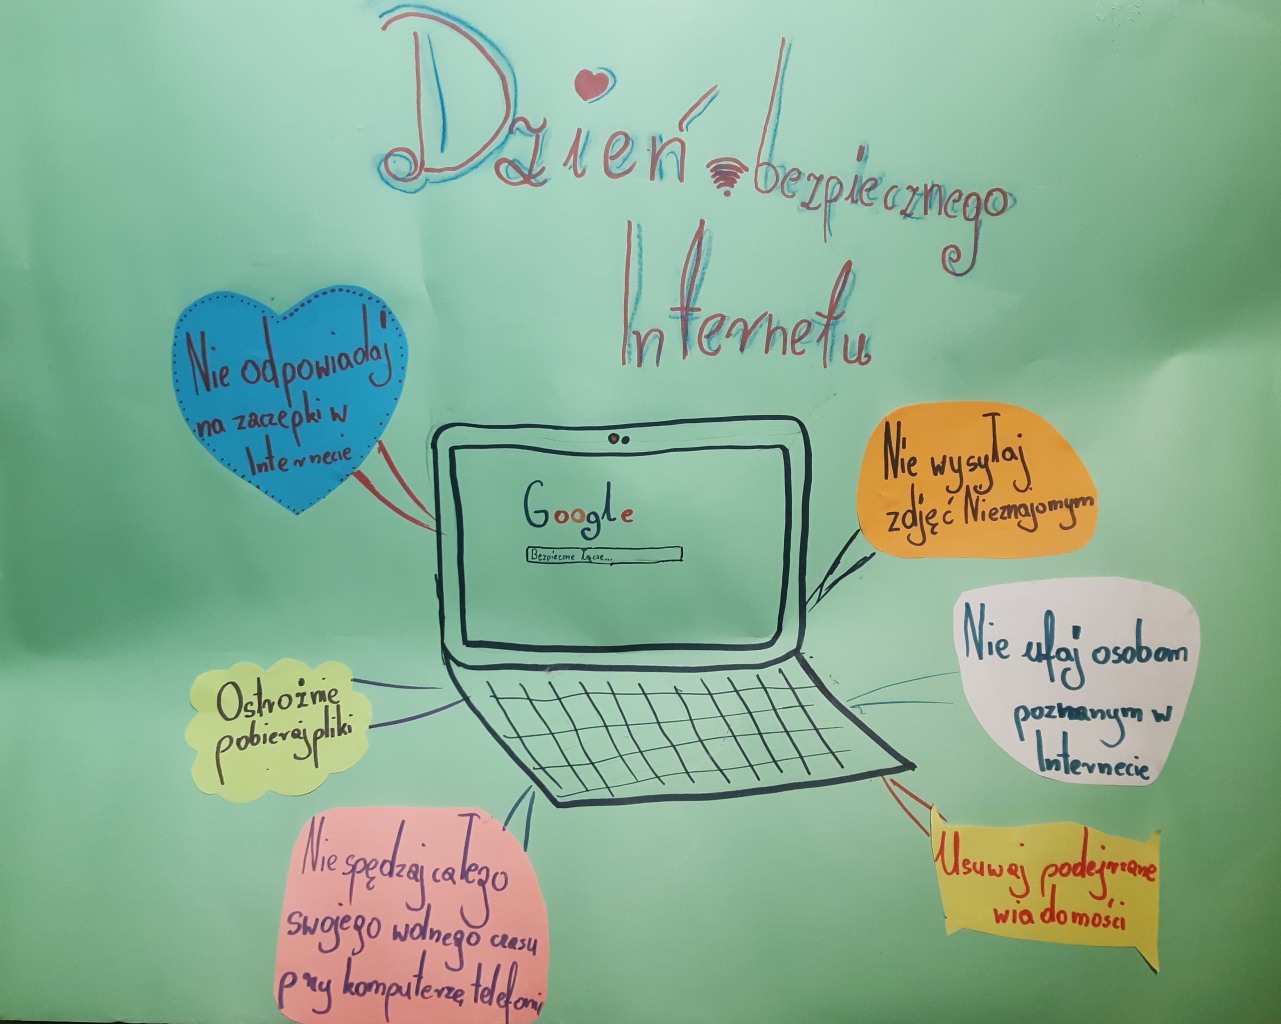 Dzień bezpiecznego
Internetu
Nie odpowiadaj
na zaczepki w
Internecie
Google
Bezpieczne łącze...
Nie wysyłaj
zdjęć Nieznajomym
Nie ufaj osobom
poznanym w
Internecie
Ostrożnie
pobieraj pliki
Nie spędzaj całego
swojego wolnego czasu
przy komputerze,
Usuwaj podejrzane
wiadomości